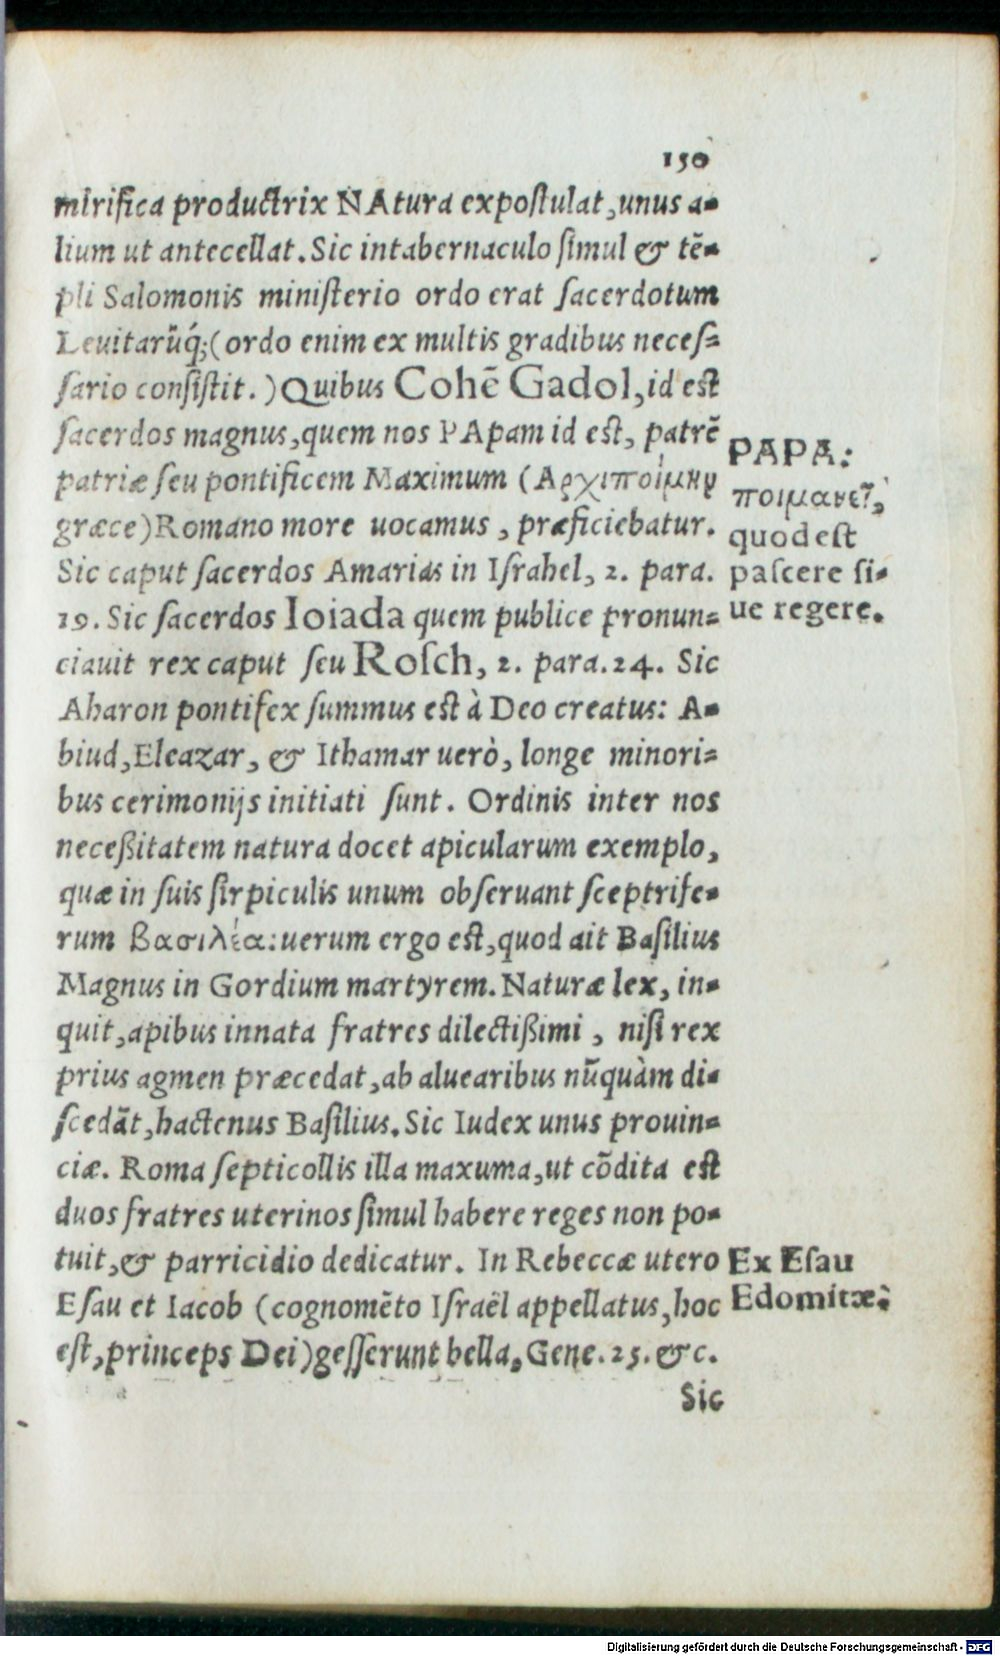 150
mirifica productrix NAtura expostulat, unus a-
lium ut antecellat. Sic in tabernaculo simul & tē-
pli Salomonis ministerio ordo erat sacerdotum
Levitarūq́;( ordo enim ex multis gradibus neces-
sario consistit.) Quibus Cohē Gadol, id est
sacerdos magnus, quem nos PApam id est, patrē
patriæ seu pontificem Maximum (Αρχιποίμην
græce) Romano more uocamus, præficiebatur.
Sic caput sacerdos Amarias in Israhel, 2. para.
19. Sic sacerdos Ioiada quem publice pronun-
ciauit rex caput seu Rosch, 2. para. 24. Sic
Aharon pontifex summus est à Deo creatus: A-
biud, Eleazar, & Ithamar uerò, longe minori-
bus cerimonijs initiati sunt. Ordinis inter nos
neceßitatem natura docet apicularum exemplo,
quæ in suis sirpiculis unum obseruant sceptrife-
rum βασιλέα: uerum ergo est, quod ait Basilius
Magnus in Gordium martyrem. Naturæ lex, in-
quit, apibus innata fratres dilectißimi, nisi rex
prius agmen præcedat, ab aluearibus nūquàm di-
scedāt, hactenus Basilius. Sic Iudex unus prouin-
ciæ. Roma septicollis illa maxuma, ut cōdita est
duos fratres uterinos simul habere reges non po-
tuit, & parricidio dedicatur. In Rebeccæ utero
Esau et Iacob (cognomēto Israël appellatus, hoc
est, princeps Dei) gesserunt bella, Gene. 25. &c.
Sic
PAPA:
quod est
pascere si-
ue regere.
Ex Esau
Edomitæ.
Digitalisierung gefördert durch die Deutsche Forschungsgemeinschaft - DFG